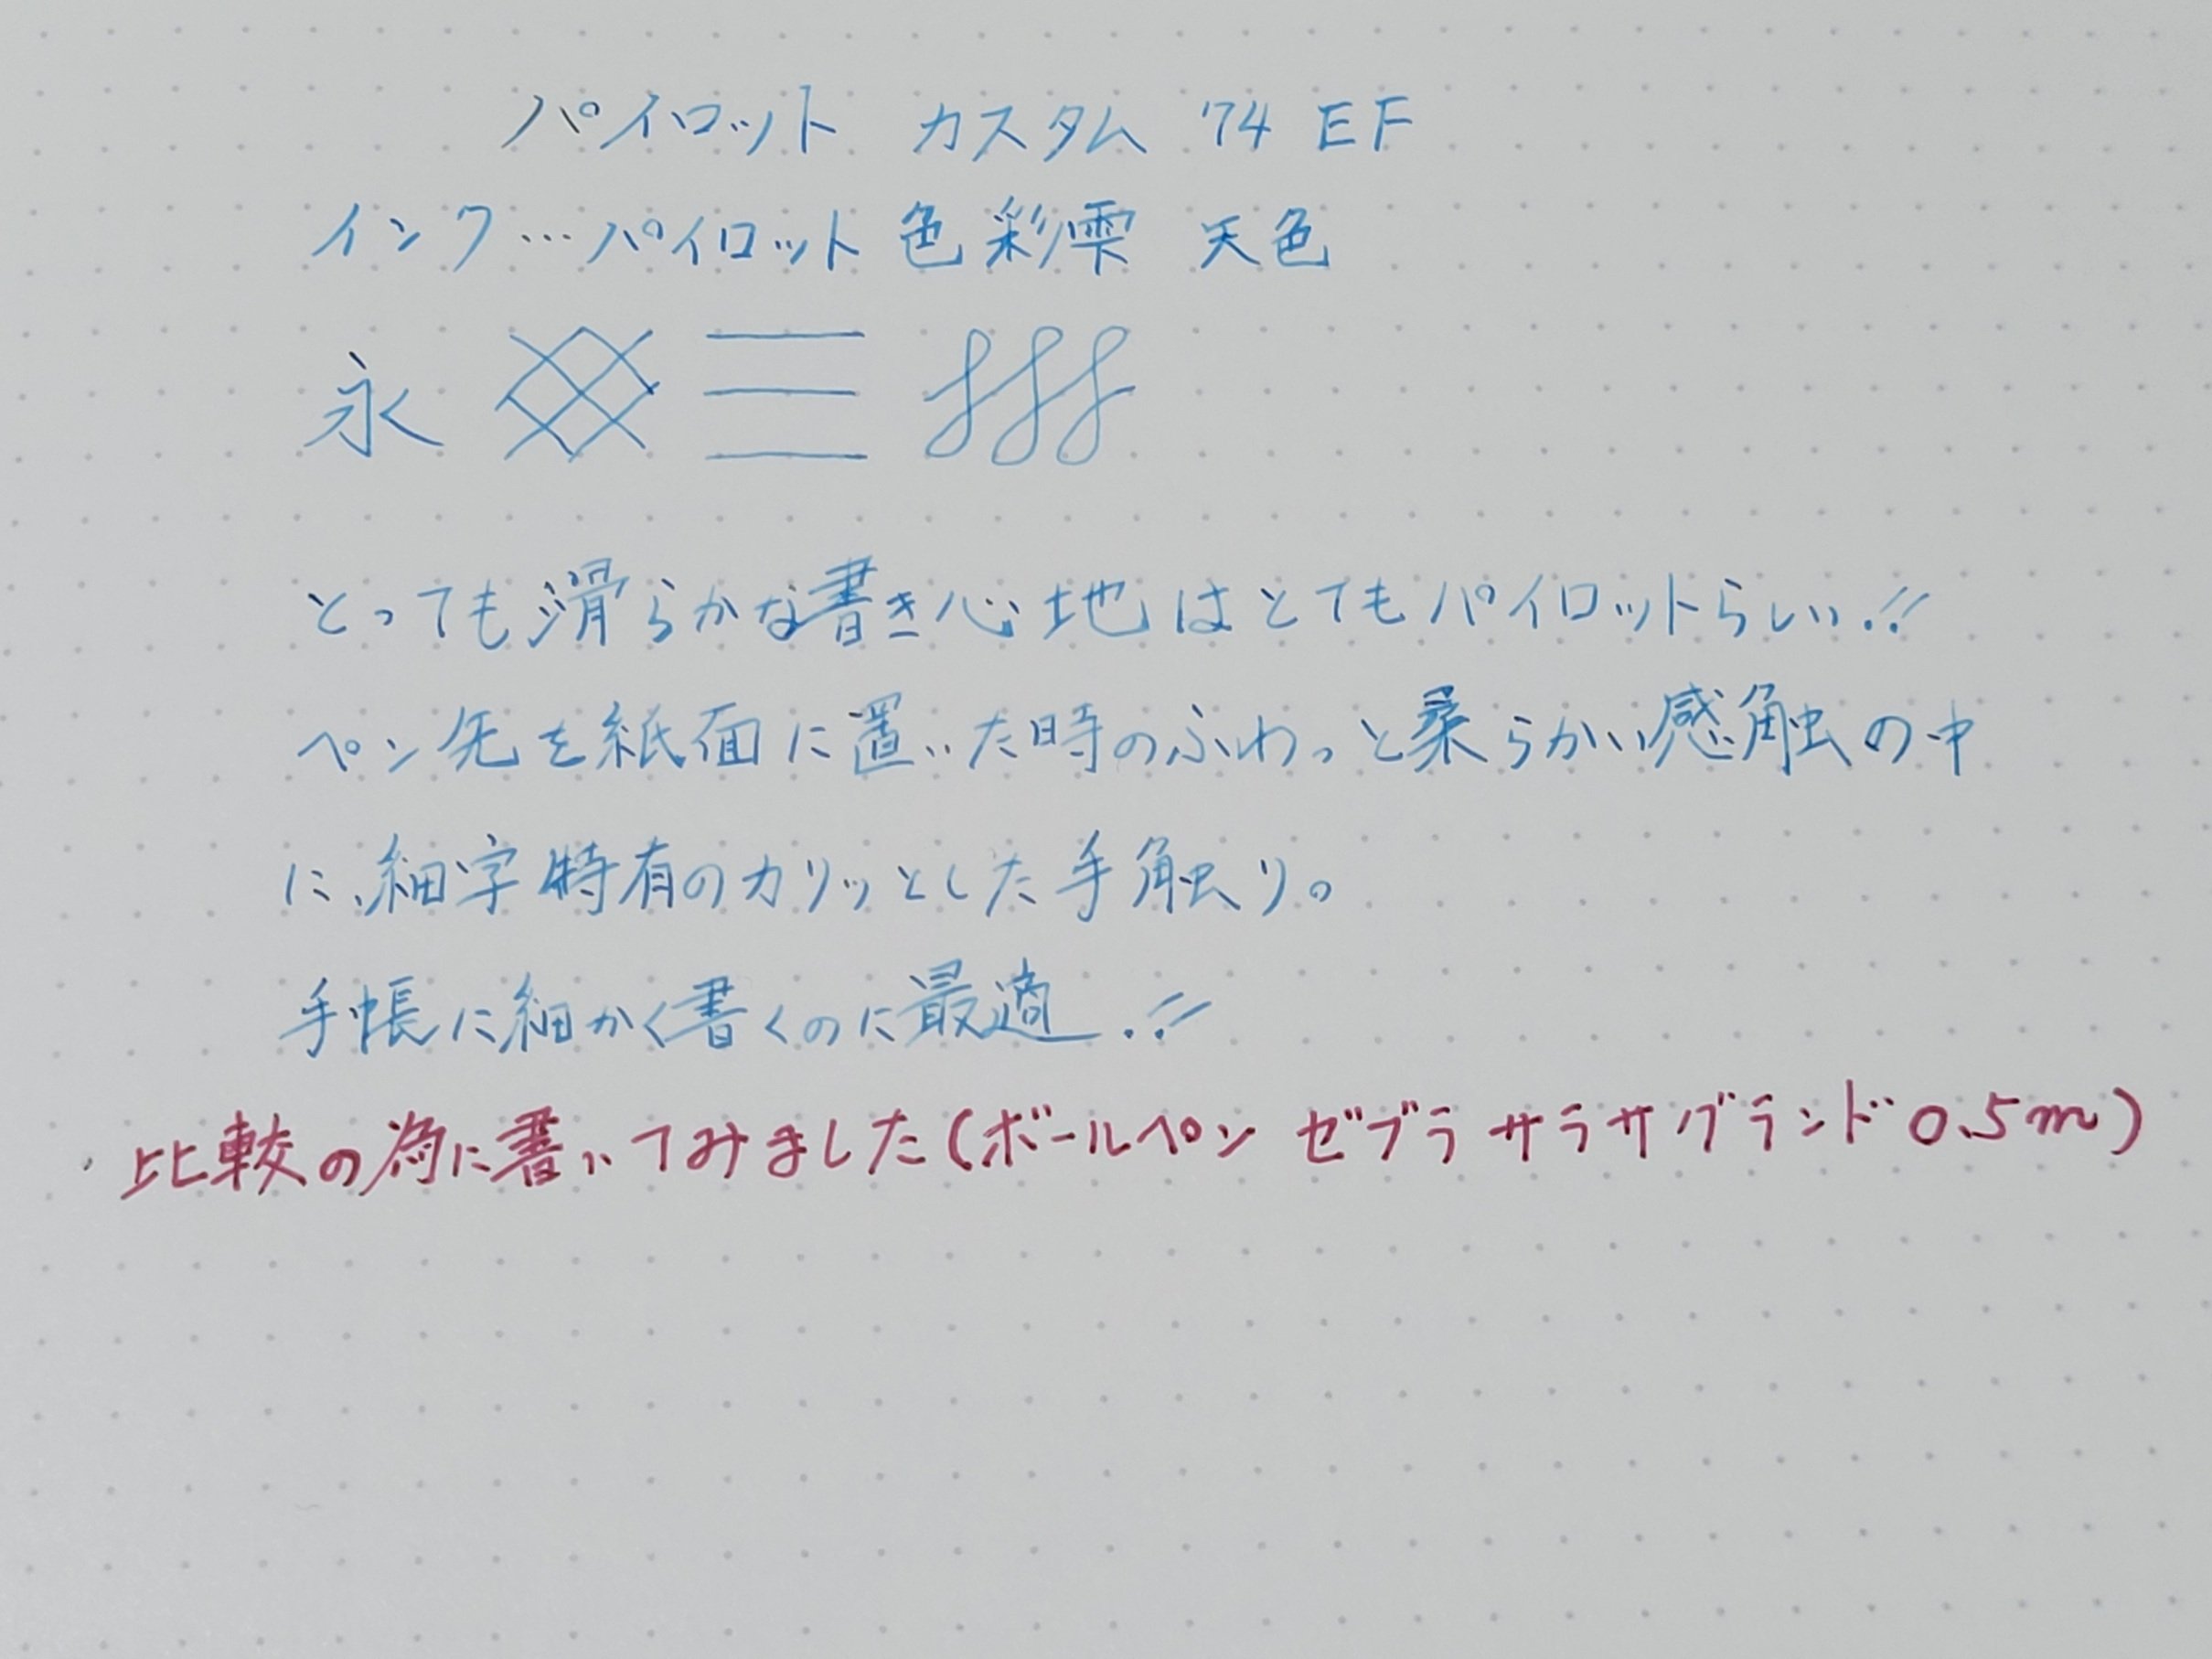 パイロット カスタム 74 EF
インク…パイロット 色彩雫 天色
永
とっても滑らかな書き心地はとてもパイロットらしい!!
ペン先を紙面に置いた時のふわっと柔らかい感触の中
に、細字特有のカリッとした手触り。
手帳に細かく書くのに最適!!
比較の為に書いてみました(ボールペン ゼブラ サラサグランド 0.5m)